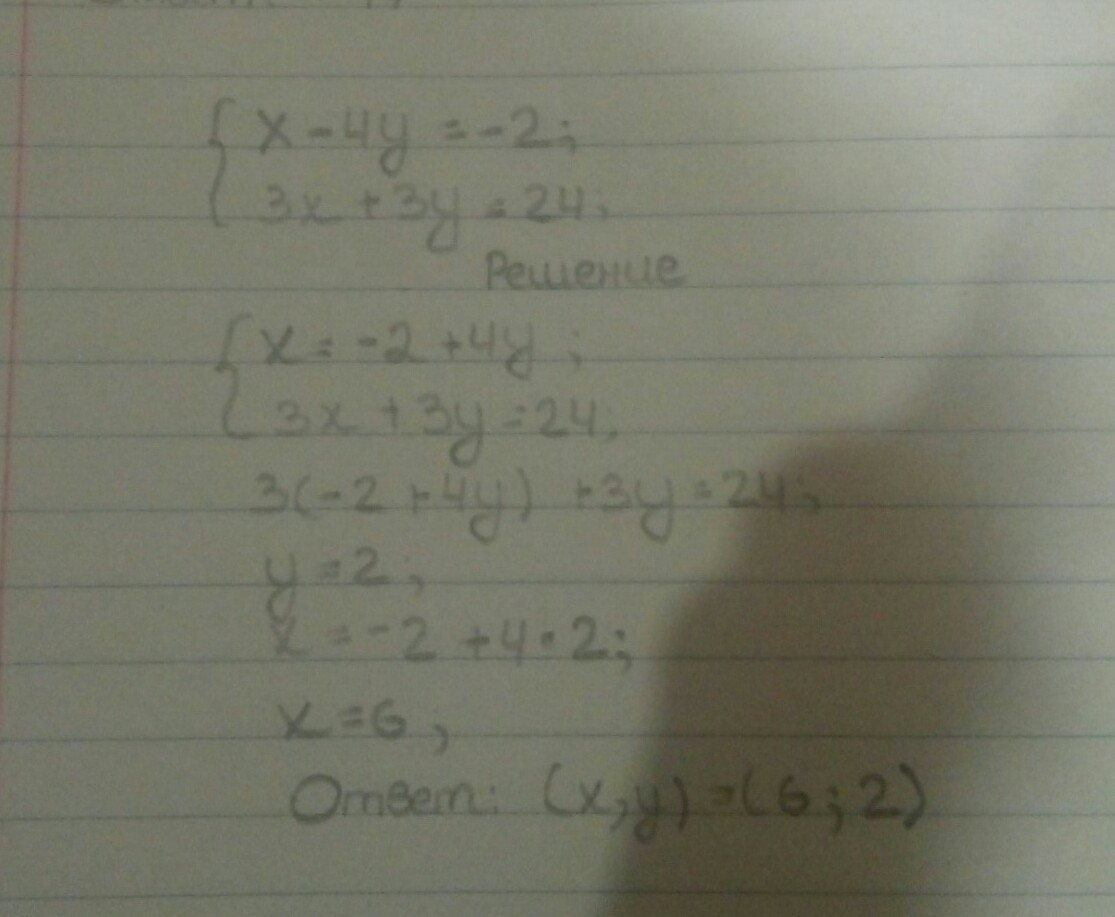 x - 4y = -2;
3x + 3y = 24;
Решение
x = -2 + 4y ;
3x + 3y = 24;
3(-2 + 4y) + 3y = 24;
y = 2;
x = -2 + 4 · 2;
x = 6 ;
Ответ: (x,y) = (6 ; 2)